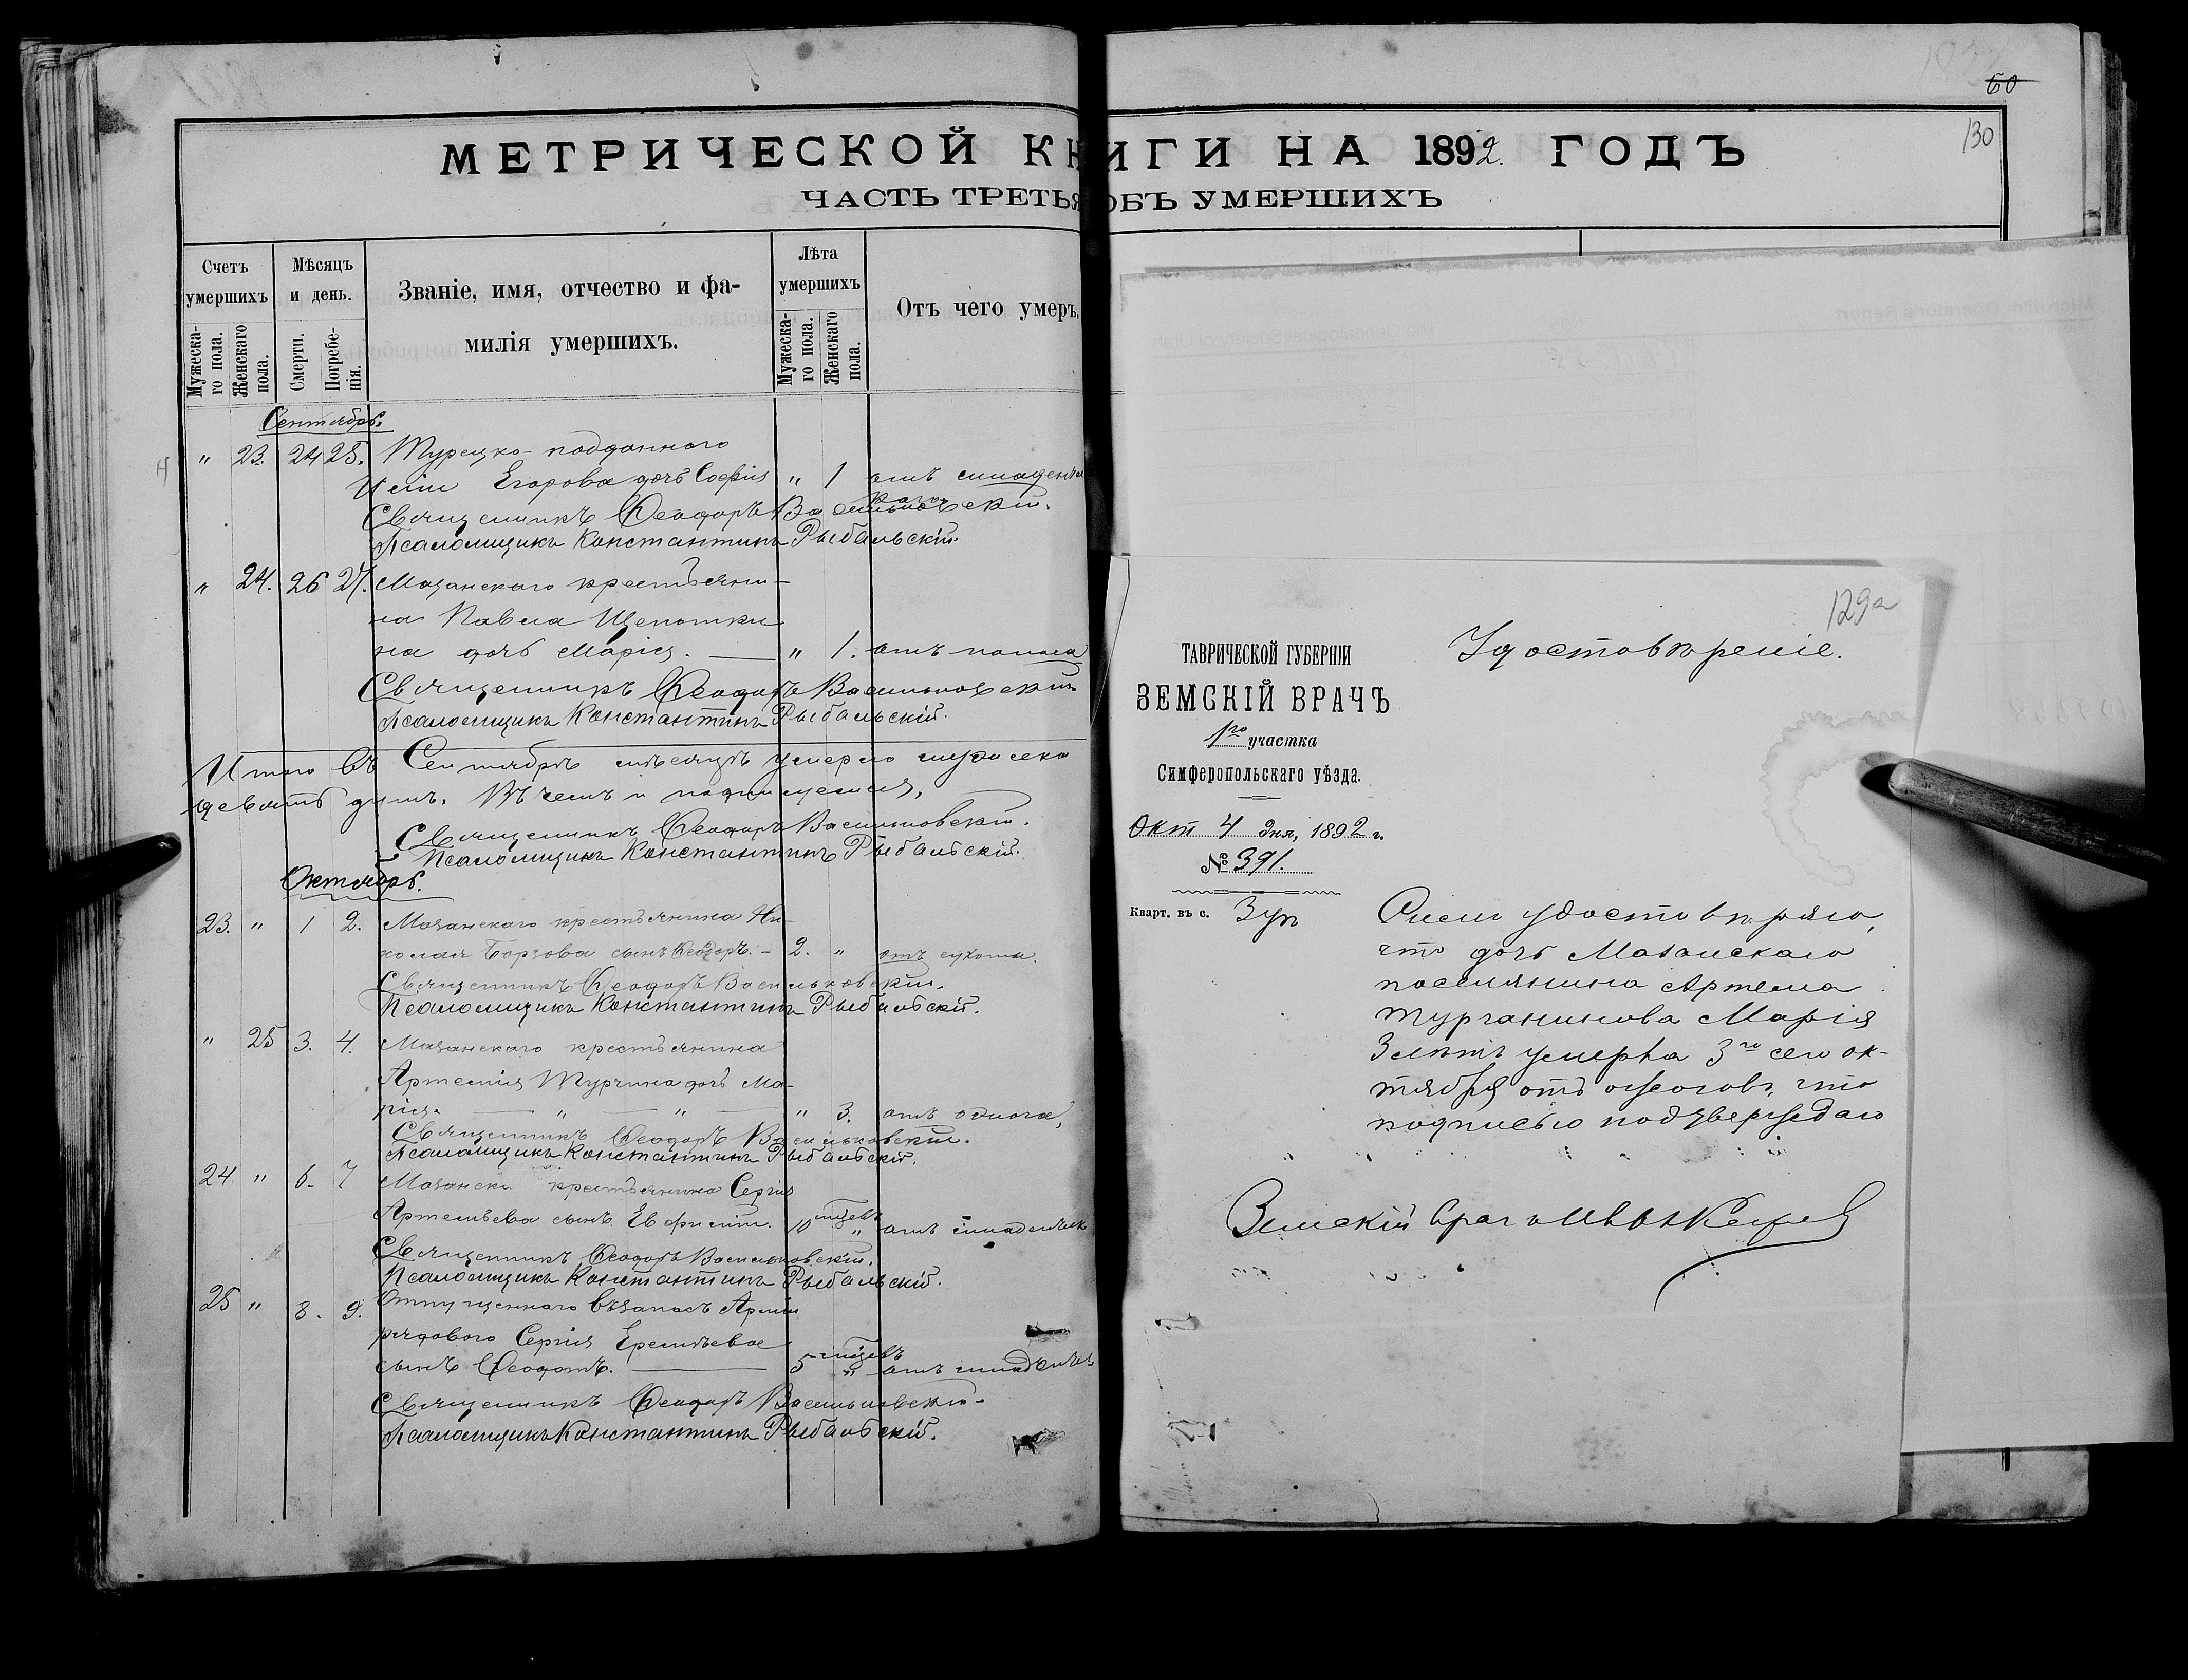 60
130
МЕТРИЧЕСКОЙ КНИГИ НА 1892. ГОДЪ
ЧАСТЬ ТРЕТЬЯ ОБЪ УМЕРШИХЪ
Счетъ умершихъ
Мужеска-го пола.
Женскаго пола.
Мѣсяцъ и день.
Смерти.
Погребе-нія.
Званіе, имя, отчество и фа-
милія умершихъ.
Лѣта умершихъ
Мужеска-го пола.
Женскаго пола.
Отъ чего умеръ.
Сентябрь.
" 23. 24 25. Турецко-подданнаго
Егорова дочь Софія " 1 отъ
Священникъ Ѳеодоръ Васильковскій.
Псаломщикъ Константинъ Рыбальскій.
" 24. 26 27. Мазанскаго крестьяни-
на Павла Щепотки
на дочь Марія. " 1. отъ поноса
Священникъ Ѳеодоръ Васильковскій
Псаломщикъ Константинъ Рыбальскій.
Итого въ Сентябрѣ мѣсяцѣ умерло
девять душъ. Въ чемъ и подписуемся,
Священникъ Ѳеодоръ Васильковскій.
Псаломщикъ Константинъ Рыбальскій.
Октябрь.
23. " 1 2. Мазанскаго крестьянина Ни-
колая Борзова сынъ Ѳеодоръ. - 2. " отъ сухоты.
Священникъ Ѳеодоръ Васильковскій.
Псаломщикъ Константинъ Рыбальскій.
" 25 3. 4. Мазанскаго крестьянина
Артемія Турчина дочь Ма-
рія. " " " 3. отъ ожога,
Священникъ Ѳеодоръ Васильковскій.
Псаломщикъ Константинъ Рыбальскій.
24 " 6. 7 крестьянина Сергія
Артемьева сынъ 10 мѣцевъ " отъ
Священникъ Ѳеодоръ Васильковскій.
Псаломщикъ Константинъ Рыбальскій.
25 " 8. 9. Отпущеннаго въ запасъ Арміи
рядового Сергія
сынъ Ѳеодотъ. 5 мѣцевъ " отъ
Священникъ Ѳеодоръ Васильковскій.
Псаломщикъ Константинъ Рыбальскій.
129а
ТАВРИЧЕСКОЙ ГУБЕРНІИ
ЗЕМСКІЙ ВРАЧЪ
1го участка
Симферопольскаго уѣзда.
Окт 4 дня, 1892 г.
№ 391.
Кварт. въ с. Зуя
Удостовѣреніе.
Симъ удостовѣряю,
что дочь Мазанскаго
поселянина Артема
Марія
3 лѣтъ умерла 3го сего ок-
тября отъ ожоговъ, что
подписью подтверждаю
Земскій врачъ